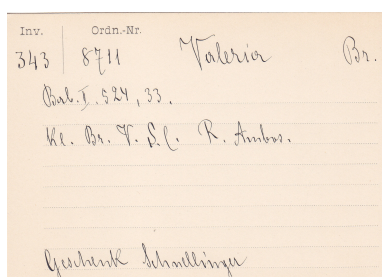 Inv. Ordn.-Nr.
343 8711 Valeria Br.
Bab. I. 527, 33.
Kl. Br. V. S.C. R. Ambos.
Geschenk Schnellinger